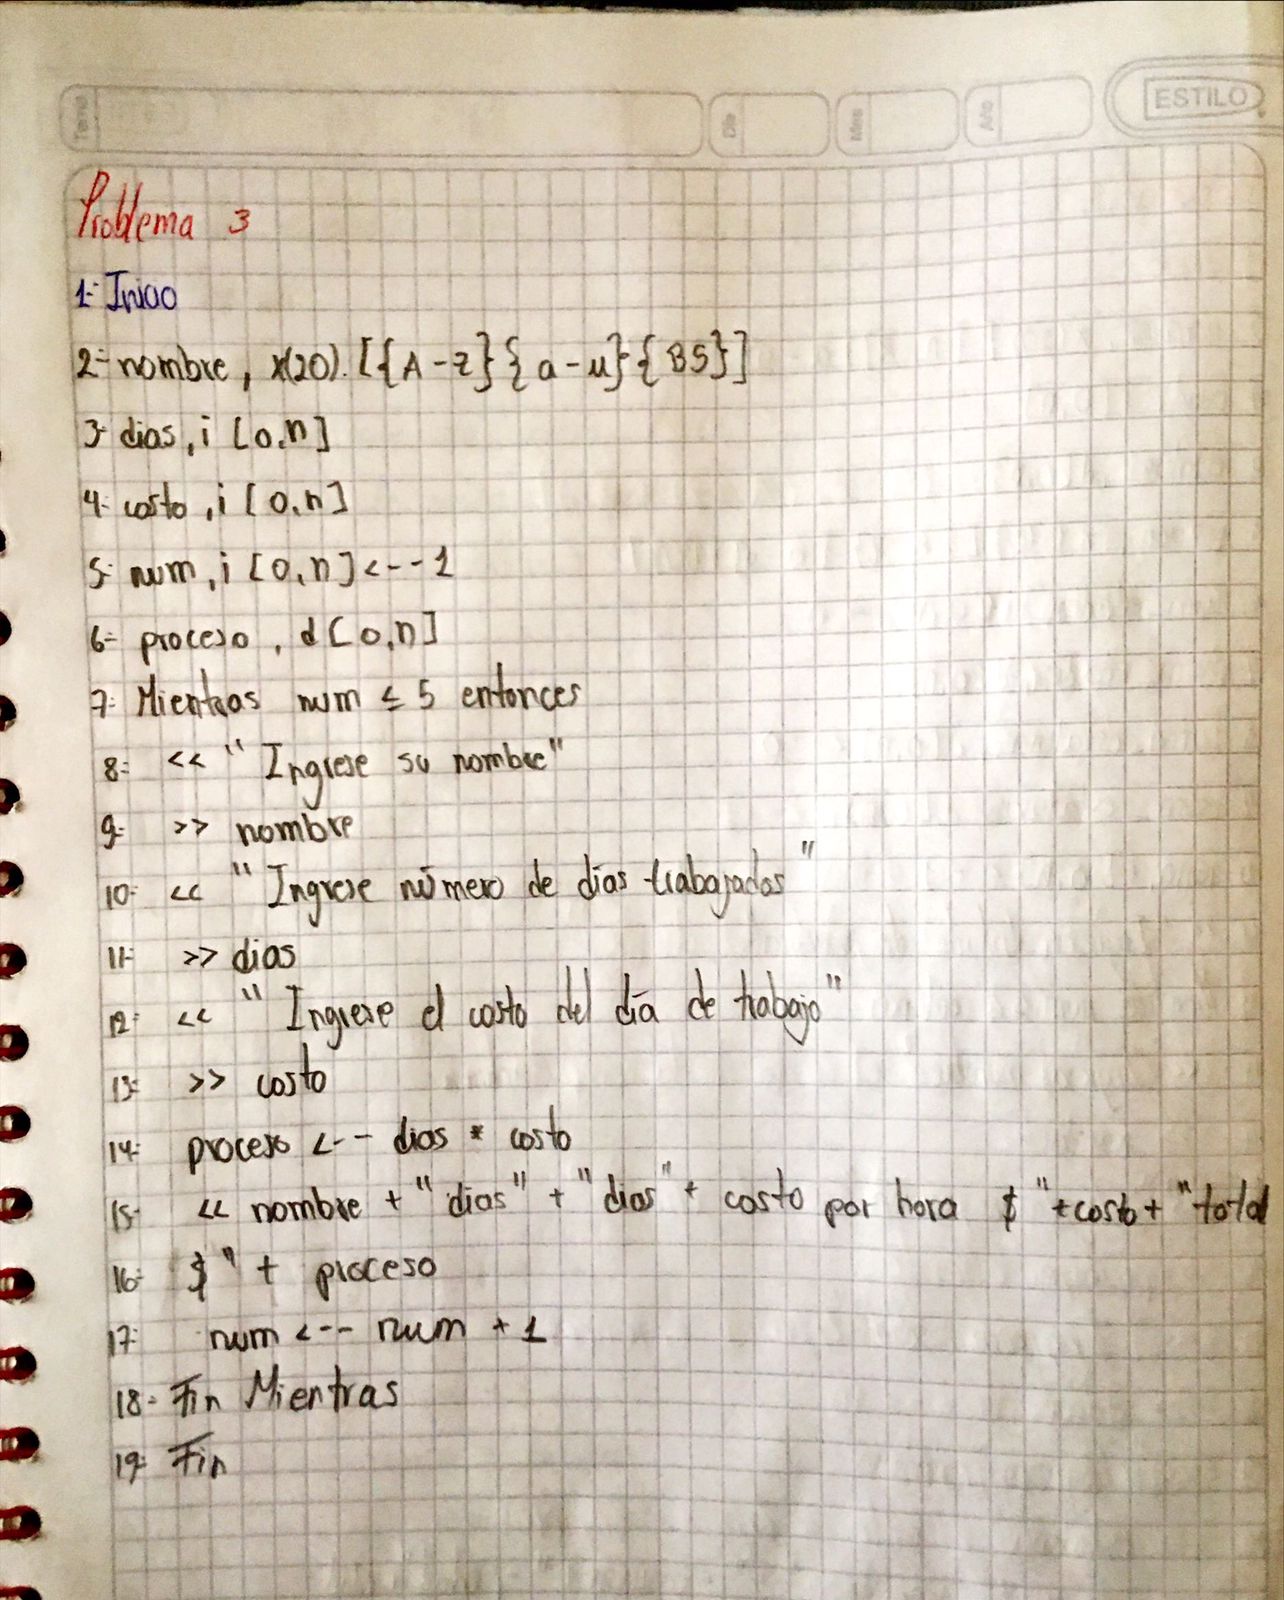 Tema
Día
Mes
Año
ESTILO
Problema 3
1- Inicio
2- nombre, x(20). [{A-z}{a-u}{BS}]
3- dias, i [0,n]
4- costo, i [0,n]
5- num, i [0,n] <-- 1
6- proceso, d [0,n]
7- Mientras num ≤ 5 entonces
8- << "Ingrese su nombre"
9- >> nombre
10- << "Ingrese número de días trabajados"
11- >> dias
12- << "Ingrese el costo del día de trabajo"
13- >> costo
14- proceso <-- dias * costo
15- << nombre + "dias" + "dias" + costo por hora $ "+costo+ "total
16- $" + proceso
17- num <-- num + 1
18- Fin Mientras
19- Fin